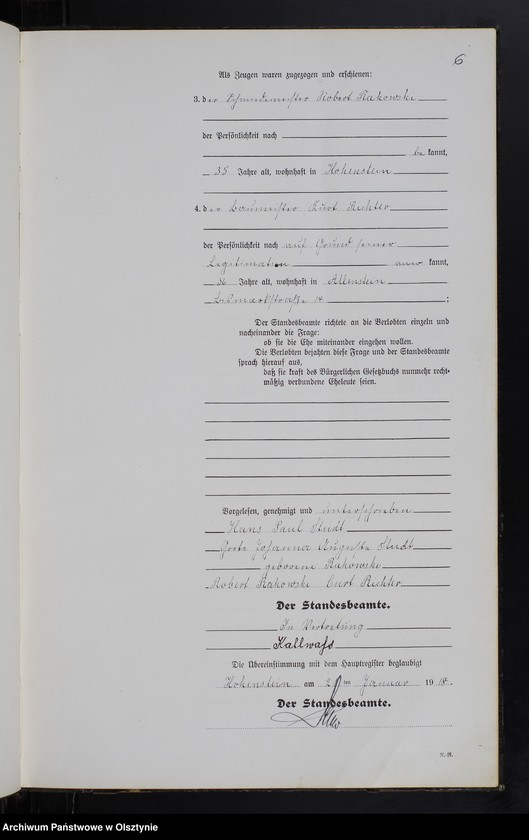 6
Als Zeugen waren zugezogen und erschienen:
3. der Schmiedemeister Robert Rakowski
der Persönlichkeit nach
be kannt,
38 Jahre alt, wohnhaft in Hohenstein
4. der Baumeister Kurt Richter
der Persönlichkeit nach auf Grund seiner
Legitimation aner kannt,
36 Jahre alt, wohnhaft in Allenstein
Bismarckstraße 14 ;
Der Standesbeamte richtete an die Verlobten einzeln und
nacheinander die Frage:
ob sie die Ehe miteinander eingehen wollen.
Die Verlobten bejahten diese Frage und der Standesbeamte
sprach hierauf aus,
daß sie kraft des Bürgerlichen Gesetzbuchs nunmehr recht-
mäßig verbundene Eheleute seien.
Vorgelesen, genehmigt und unterschrieben
Hans Paul Studt
Johanna Auguste Studt
geborene Rakowski
Robert Rakowski Curt Richter
Der Standesbeamte.
In Vertretung
Kallwaß
Die Übereinstimmung mit dem Hauptregister beglaubigt
Hohenstein am ten Januar 1918.
Der Standesbeamte.
Archiwum Państwowe w Olsztynie